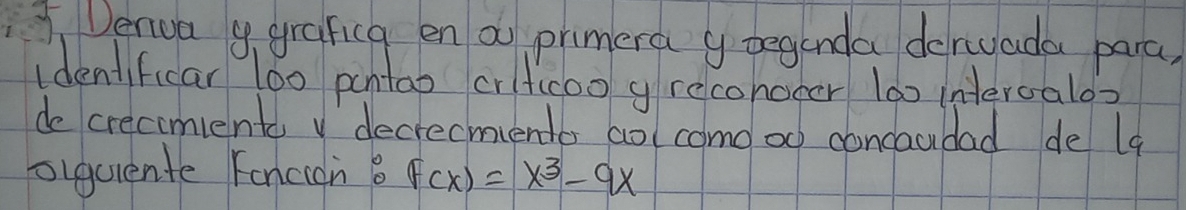 5. Deriva y grafica en su primera y segunda derivada para,
identificar los puntos criticos y reconocer los intervalos
de crecimiento y decrecimiento asi como su concavidad de la
siguiente Función: f(x) = x³ - 9x